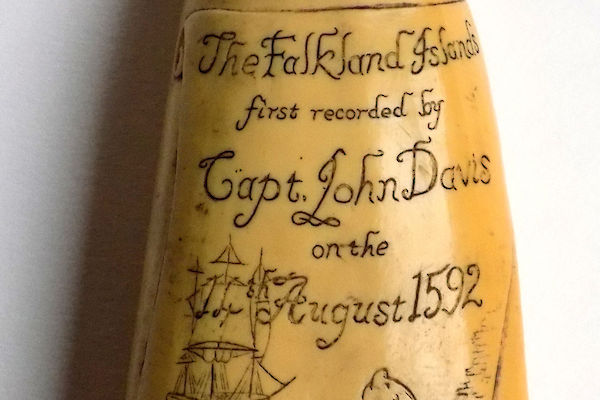 The Falkland Islands
first recorded by
Capt. John Davis
on the
14th August 1592